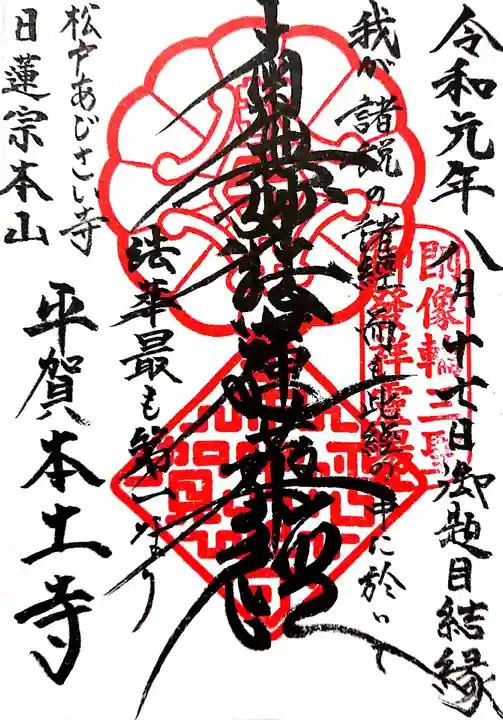 令和元年八月十七日御題目結縁
師像輪三聖
御發祥霊場
我が諸説の諸経而も此経の中に於いて
南無妙法蓮華経
法華最も第一なり
松戸あじさい寺
日蓮宗本山
平賀本土寺